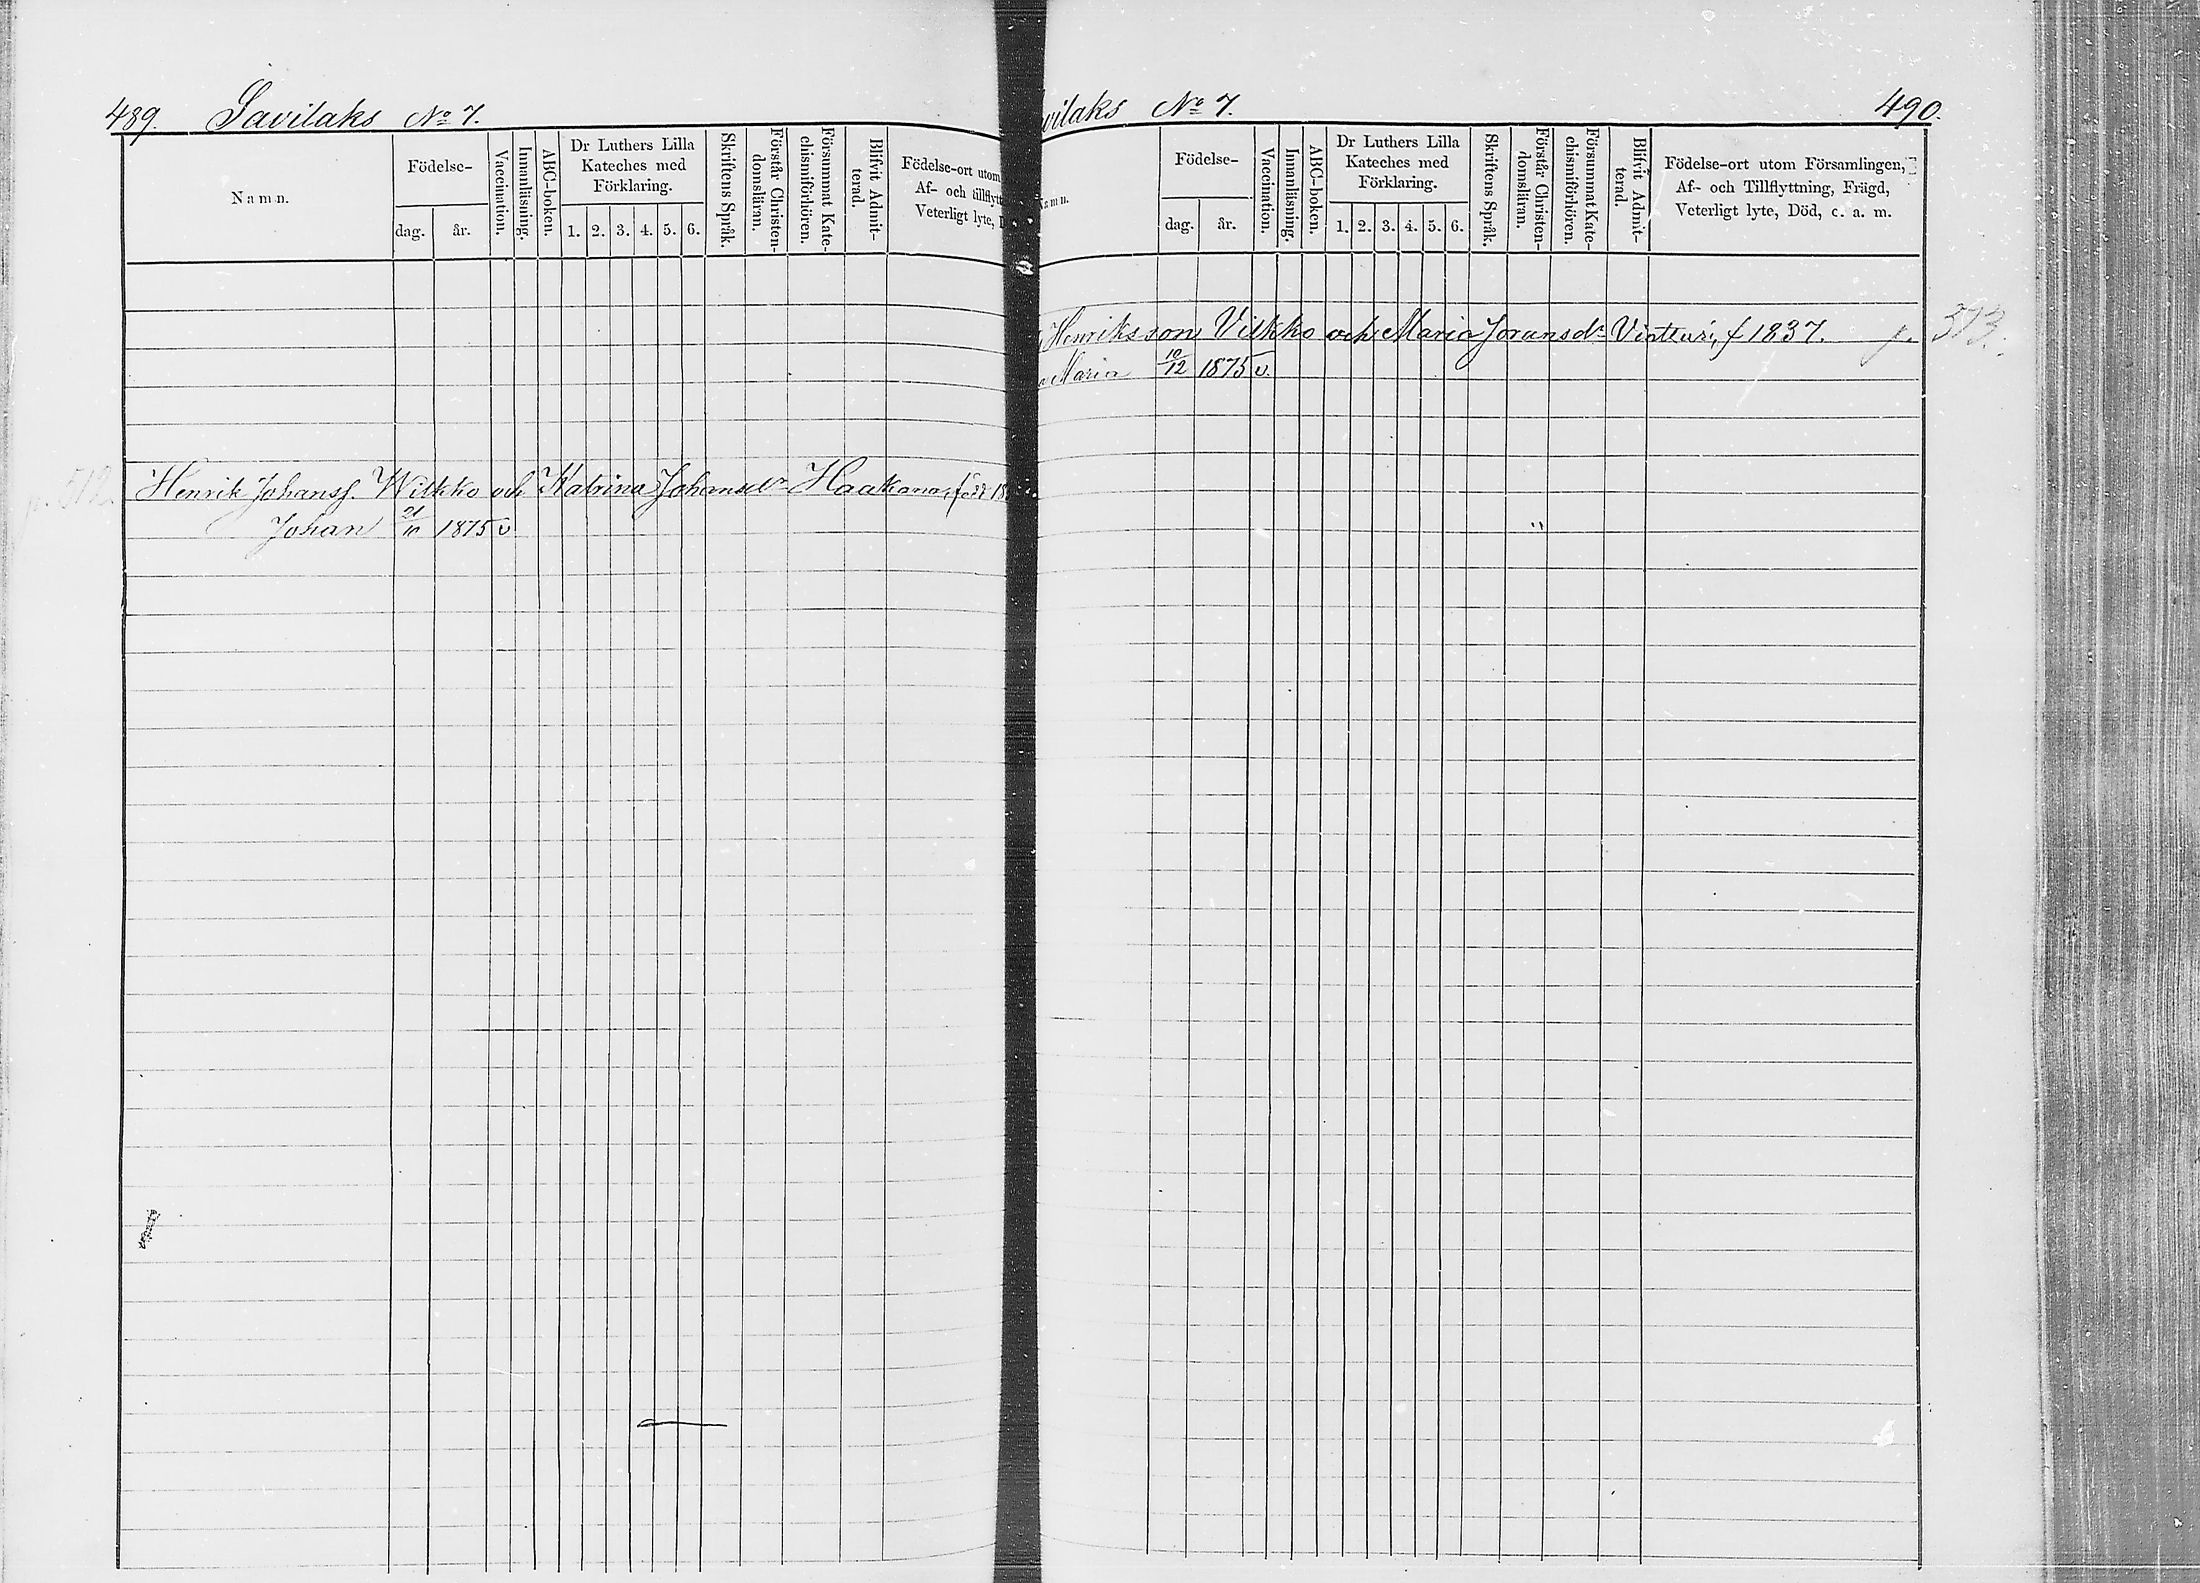 489. Savilaks No 7.
Namn.
Födelse-
dag. år.
Vaccination.
Innanläsning.
ABC-boken.
Dr Luthers Lilla
Kateches med
Förklaring.
1. 2. 3. 4. 5. 6.
Skriftens Språk.
Förstår Christen-
domsläran.
Försummat Kate-
chismiförhören.
Blifvit Admit-
terad.
Födelse-ort utom
Af- och tillflytt
Veterligt lyte,
Henrik Johanss. Wilkko och Katrina Johansdr Haakana, född 18
Johan 21/10 1875 v
vilaks No 7. 490.
Namn.
Födelse-
dag. år.
Vaccination.
Innanläsning.
ABC-boken.
Dr Luthers Lilla
Kateches med
Förklaring.
1. 2. 3. 4. 5. 6.
Skriftens Språk.
Förstår Christen-
domsläran.
Försummat Kate-
chismiförhören.
Blifvit Admit-
terad.
Födelse-ort utom Församlingen,
Af- och Tillflyttning, Frägd,
Veterligt lyte, Död, c. a. m.
Henriksson Vilkko och Maria Göransdr f 1837.
Maria 10/12 1875 v.